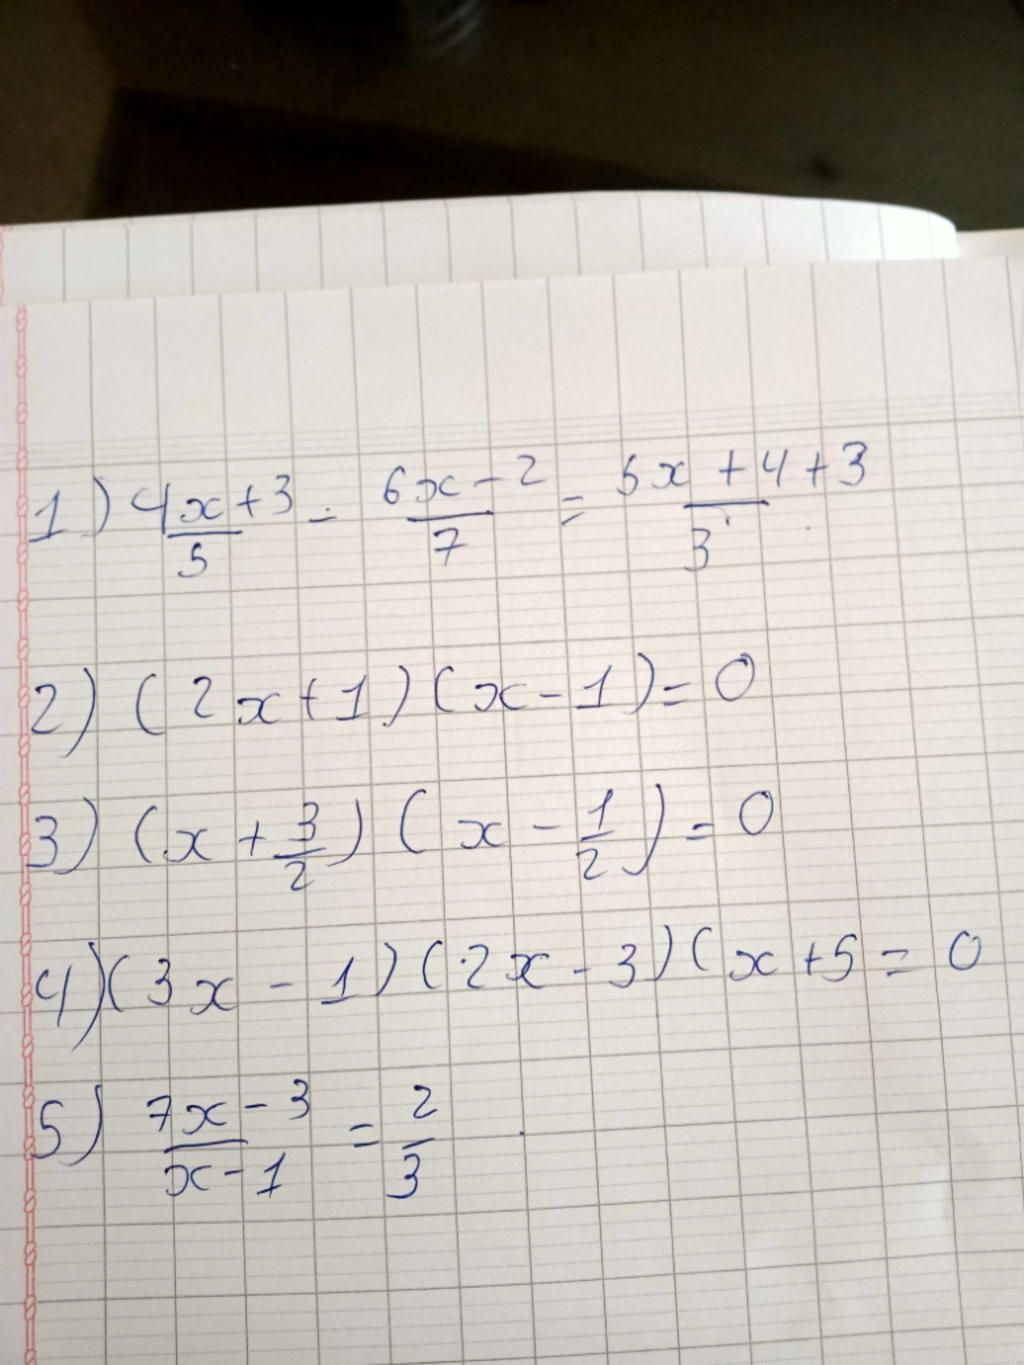 1) 4x+3/5 - 6x-2/7 = 5x+4+3/3
2) (2x+1)(x-1)=0
3) (x+3/2)(x-1/2)=0
4) (3x-1)(2x-3)(x+5=0
5) 7x-3/x-1 = 2/3